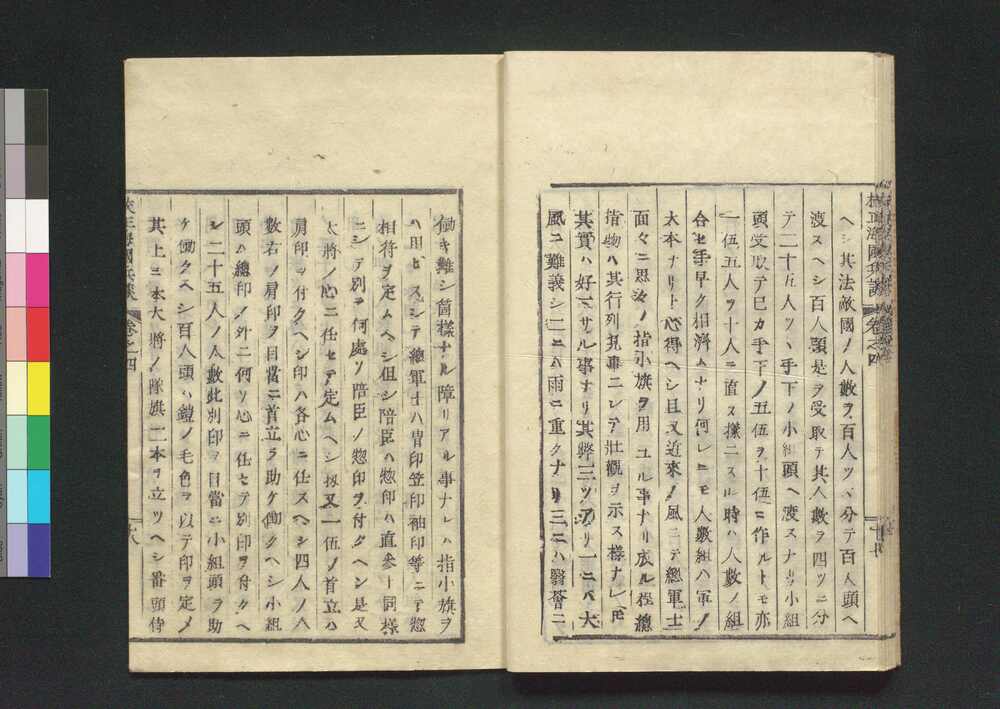 ヘシ其法敵國ノ人數ヲ百人ツヽ分テ百人頭ヘ
渡スヘシ百人頭是ヲ受取テ其人數ヲ四ツニ分
テ二十五人ツヽ手下ノ小組頭ヘ渡スナリ小組
頭受取テ已カ手下ノ五伍ヲ十伍ニ作ルトモ亦
一伍五人ヲ十人ニ直ス樣ニスル時ハ人數ノ組
合セ手早ク相濟ムナリ何レニモ人數組ハ軍ノ
大本ナリト心得ヘシ且又近來ノ風ニテ總軍士
面々ニ思々ノ指小旗ヲ用ユル事ナリ底ル程總
指物ハ其行列見事ニシテ壯觀ヲ示ス樣ナレ𪜈
其實ハ好マサル事ナリ其弊三ツアリ一ニハ大
風ニ難義シ二ニハ雨ニ重クナリ三ニハ翳薈ニ
校正海國兵談 卷之四
働キ難シ箇樣ナル障リアル事ナレハ指小旗ヲ
ハ用ヒスシテ總軍士ハ胄印笠印袖印等ニテ惣
相符ヲ定ムヘシ但シ陪臣ハ惣印ハ直參ト同樣
ニシテ別ヲ何處ソ陪臣ノ惣印ヲ付クヘシ是又
大將ノ心ニ任セテ定ムヘシ扨又一伍ノ首立ハ
肩印ヲ付クヘシ印ハ各心ニ任スヘシ四人ノ人
數右ノ肩印ヲ目當ニ首立ヲ助ケ働クヘシ小組
頭ハ總印ノ外ニ何ソ心ニ任セテ別印ヲ付クヘ
シ二十五人ノ人數此別印ヲ目當ニ小組頭ヲ助
ケ働クヘシ百人頭ハ鎧ノ毛色ヲ以テ印ヲ定メ
其上ニ本大將ノ隊旗二本ヲ立ツヘシ番頭侍
校正海國兵談 卷之四